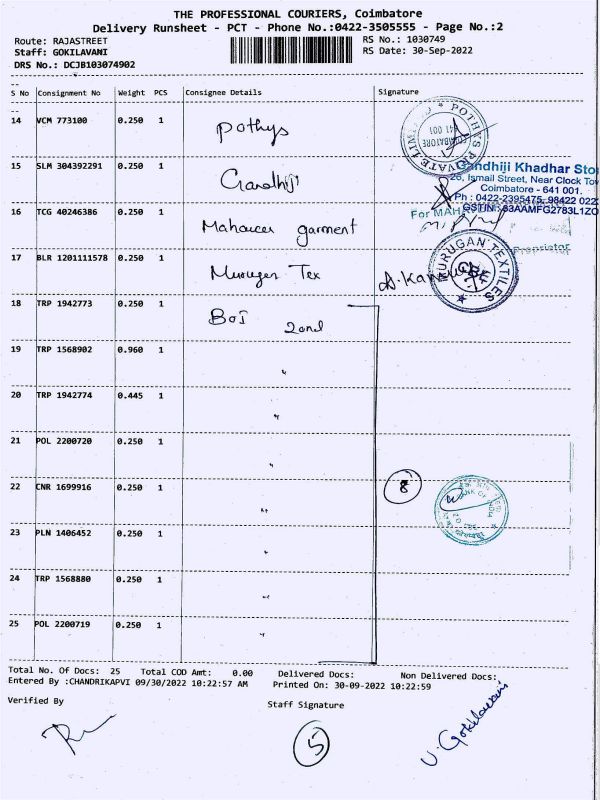 THE PROFESSIONAL COURIERS, Coimbatore
Delivery Runsheet - PCT - Phone No.:0422-3505555 - Page No.:2
Route: RAJASTREET
Staff: GOKILAVANI
DRS No.: DCJB103074902
RS No.: 1030749
RS Date: 30-Sep-2022
S No Consignment No Weight PCS Consignee Details Signature
14 VCM 773100 0.250 1 Pothys
POTHYS PRIVATE LIMITED
COIMBATORE
641 001
15 SLM 304392291 0.250 1 Gandhiji
Gandhiji Khadhar Sto
26, Ismail Street, Near Clock Tow
Coimbatore - 641 001.
Ph : 0422-2395475, 98422 022
GSTIN : 33AAMFG2783L1ZO
16 TCG 40246386 0.250 1 Mahaveer garment
For MAHA
Proprietor
17 BLR 1201111578 0.250 1 Murugan Tex
MURUGAN TEXTILES
CBE
18 TRP 1942773 0.250 1 BOI 2nd
19 TRP 1568902 0.960 1 "
20 TRP 1942774 0.445 1 "
21 POL 2200720 0.250 1 "
22 CNR 1699916 0.250 1 "
8
BANK OF INDIA
23 PLN 1406452 0.250 1 "
24 TRP 1568880 0.250 1 "
25 POL 2200719 0.250 1 "
Total No. Of Docs: 25 Total COD Amt: 0.00 Delivered Docs: Non Delivered Docs:
Entered By :CHANDRIKAPVI 09/30/2022 10:22:57 AM Printed On: 30-09-2022 10:22:59
Verified By
Staff Signature
5
U. Gokilavani